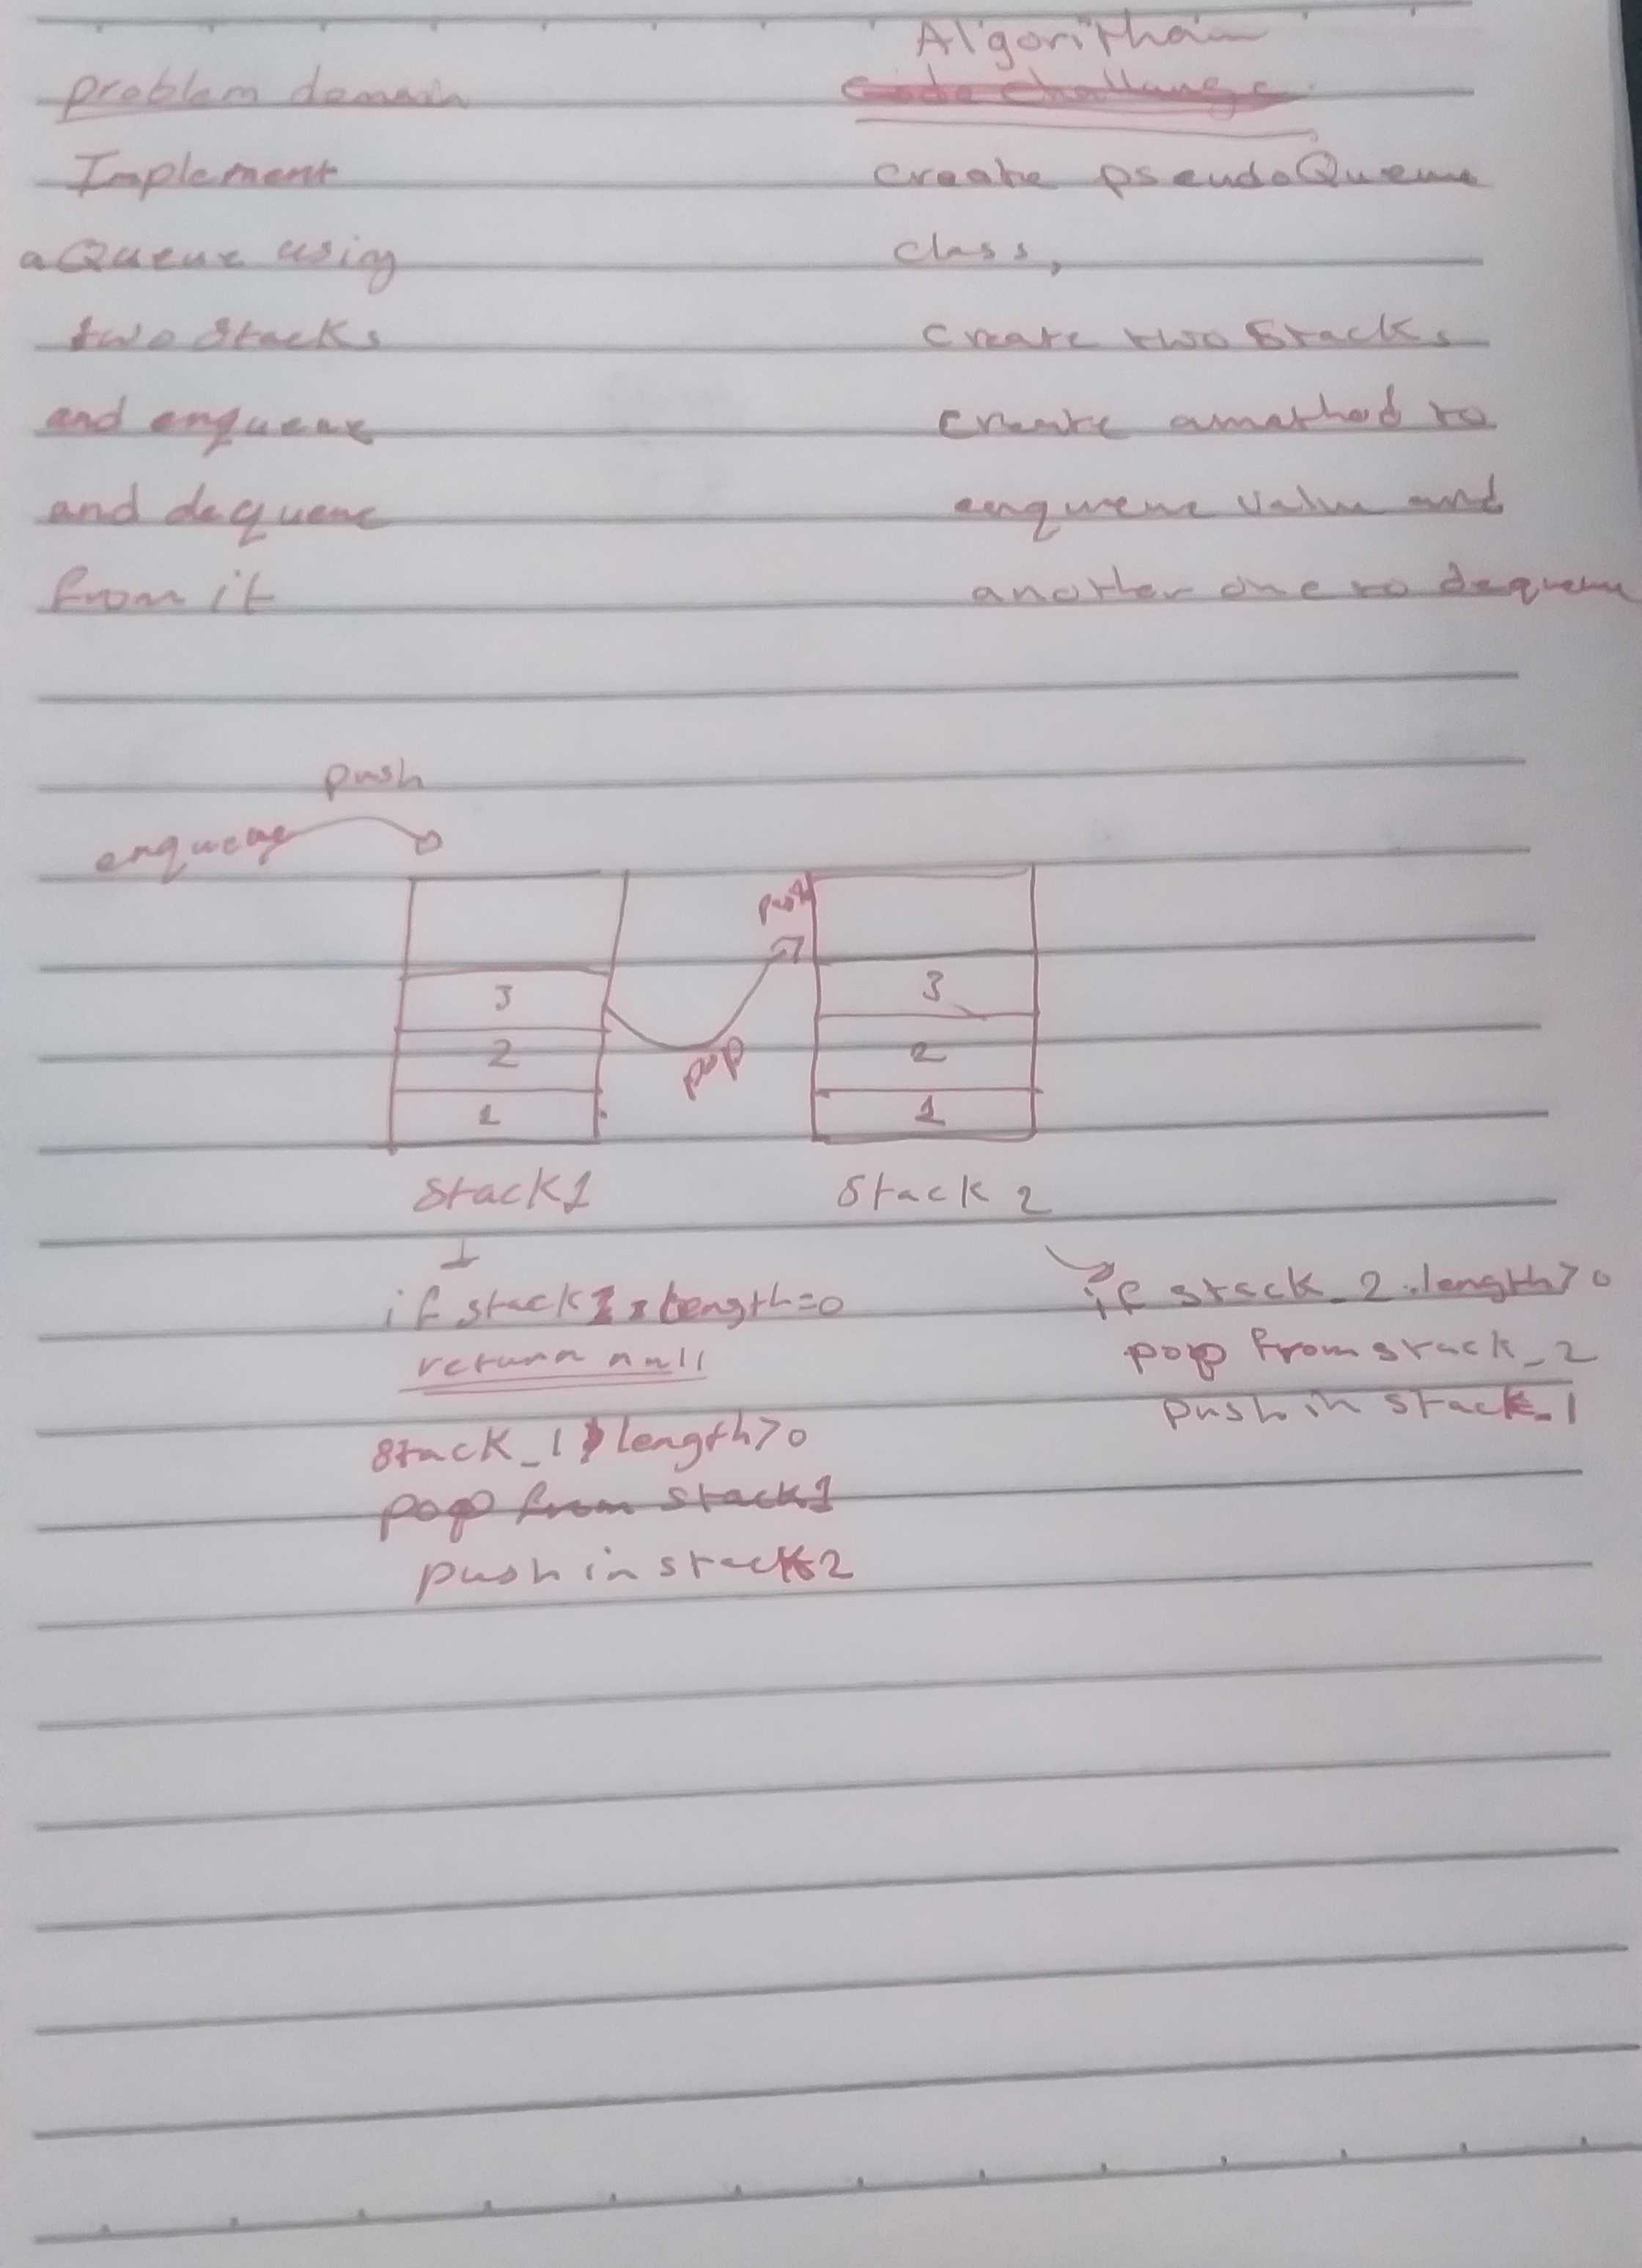 problem domain
Implement
a Queue using
two stacks
and enqueue
and dequeue
from it
Algorithm
code challange
create pseudoQueue
class,
create two Stacks
create a method to
enqueue value and
another one to dequeue
push
enqueue
push
3
2
1
pop
3
2
1
Stack1
if stack1.length=0
return null
stack_1 length>0
pop from stack1
push in stack2
Stack 2
if stack_2.length>0
pop from stack_2
push in stack_1